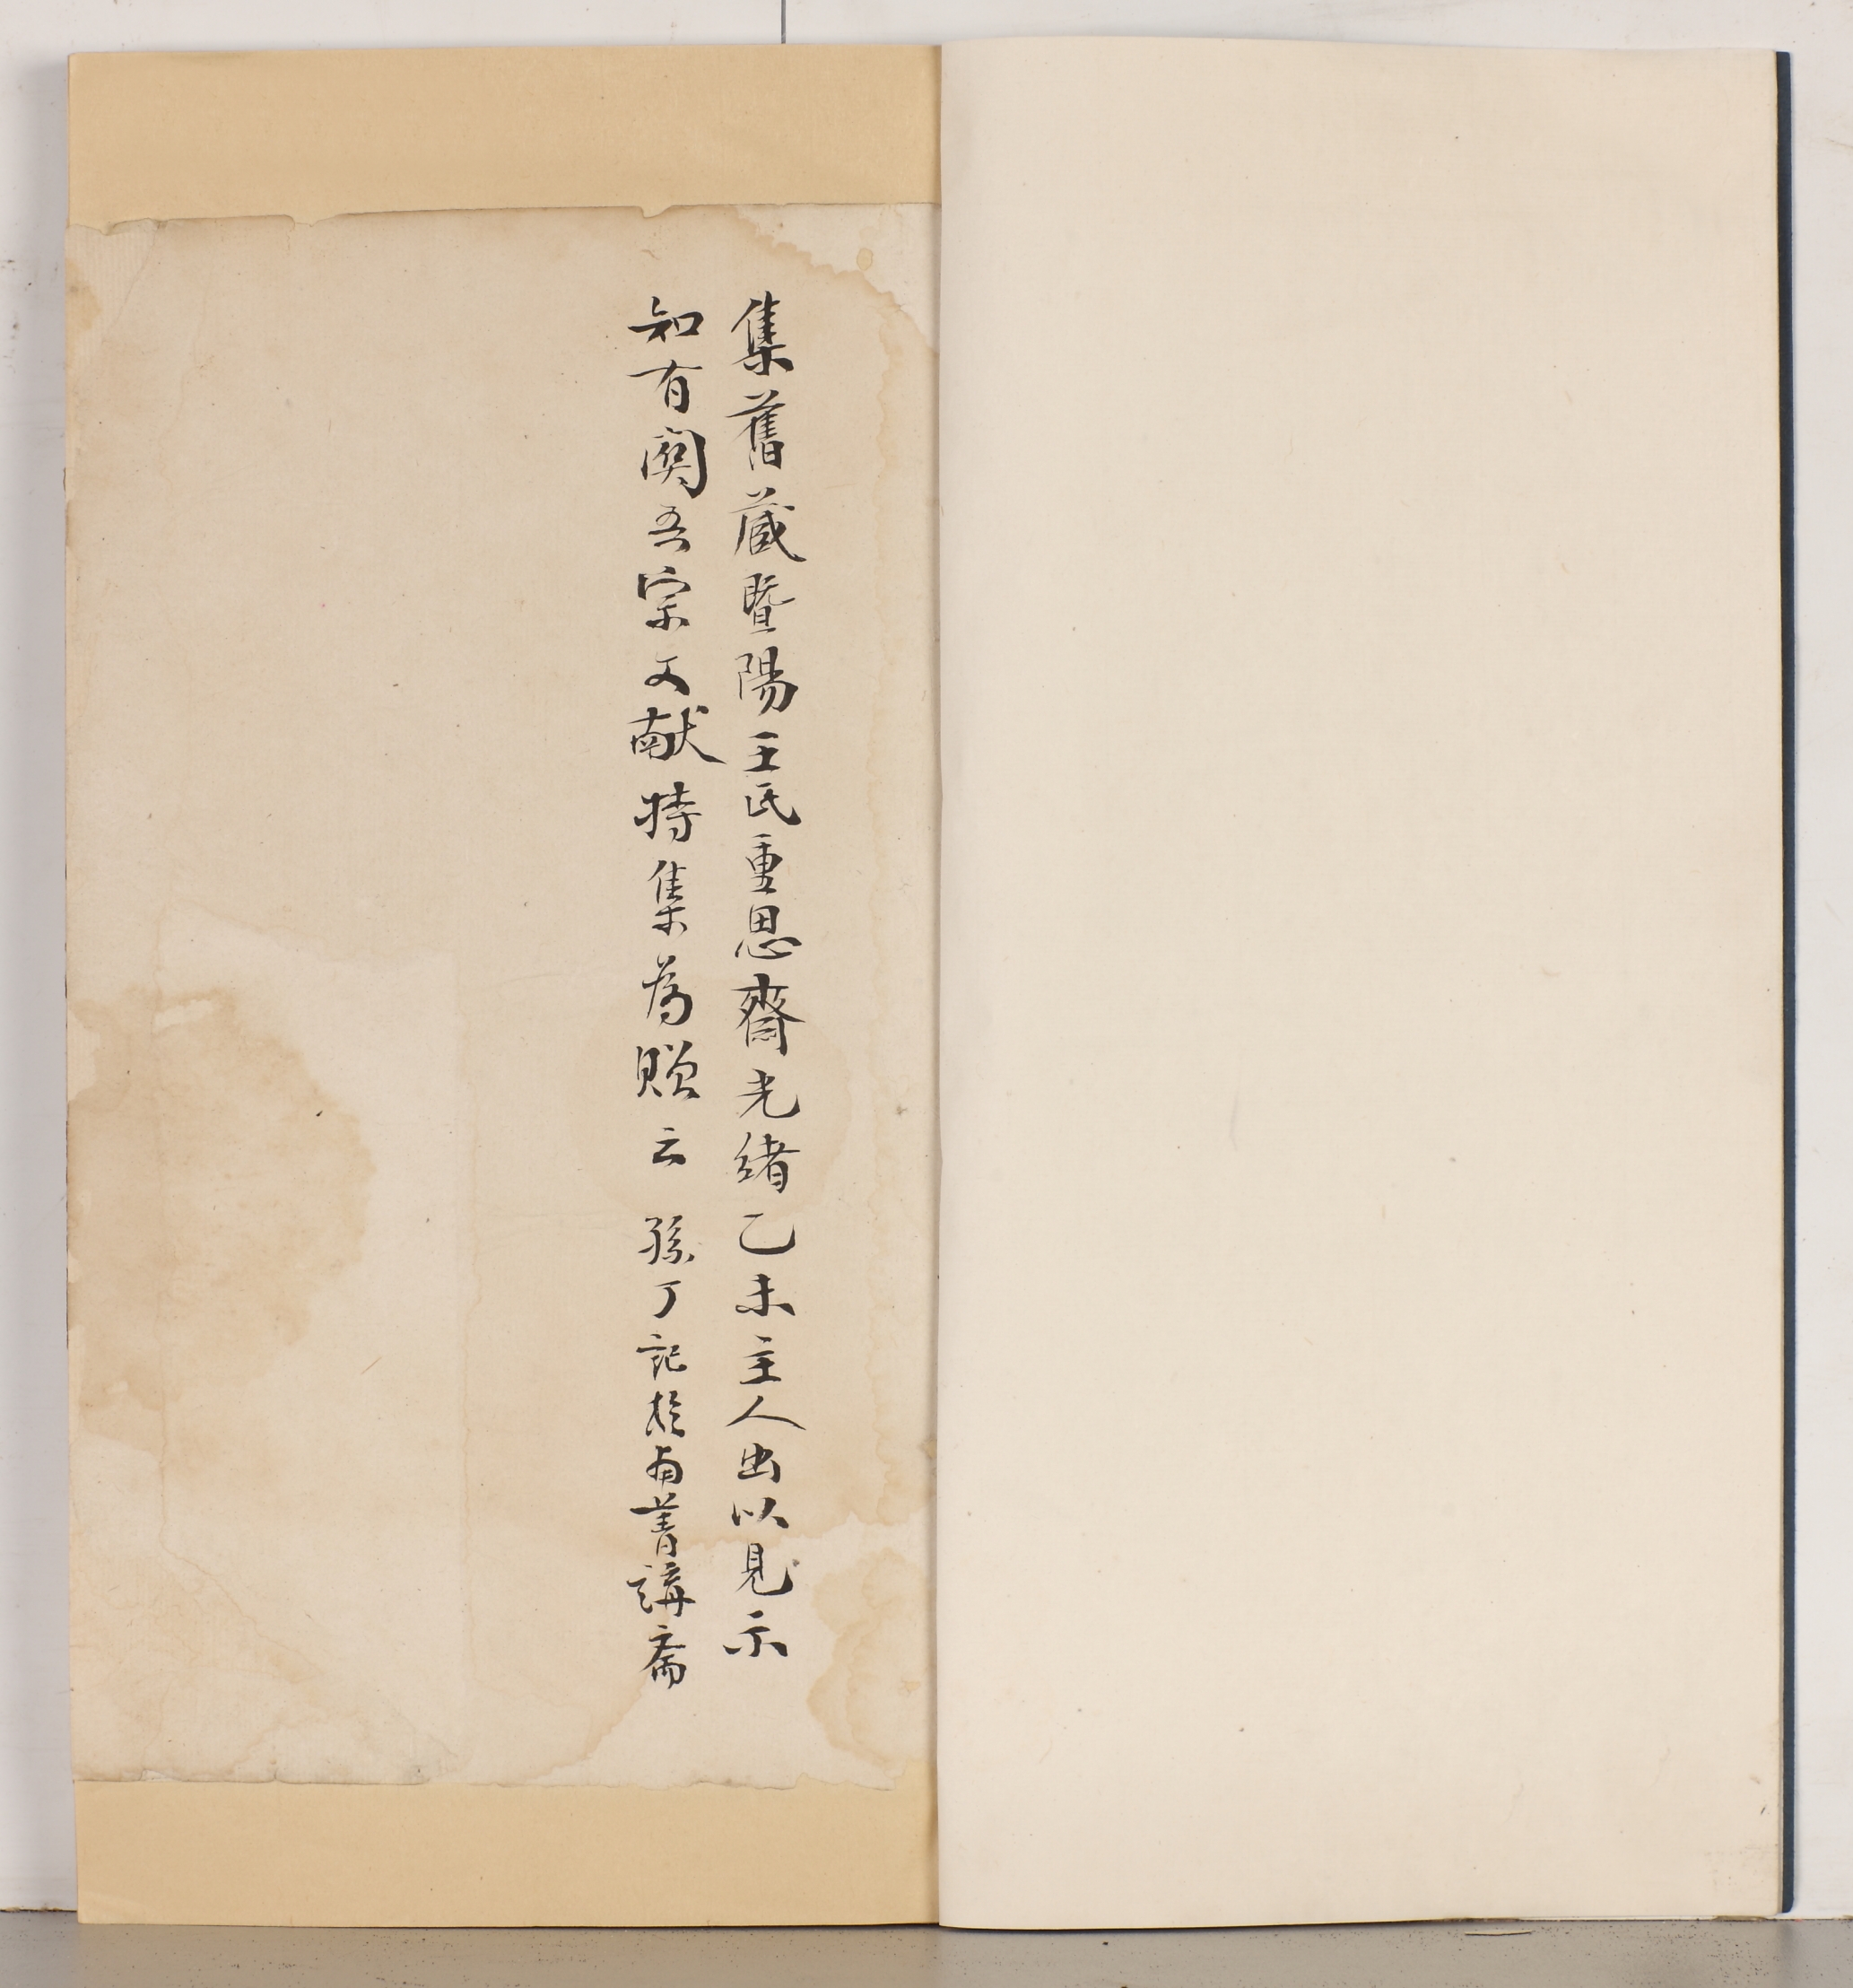 集舊藏暨陽王氏重思齋光緒乙未主人出以見示
知有關吾宗文献特集為贈云 孫丁記於南菁講斋